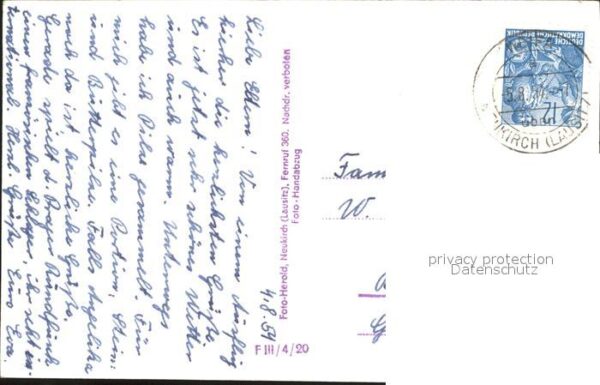 4.8.54
Liebe Eltern! Von einem Ausflug
hierher die herzlichsten Grüße.
Es ist jetzt sehr schönes Wetter
und auch warm. Unterwegs
habe ich Pilze gesammelt. Für
mich gibt es eine Portion Stein-
und Butterpilze. Falls Angelika
noch da ist herzliche Grüße.
Gerade spielt d. Prager Rundfunk
einen
ternational. Herzl. Grüße Eure Eva.
Foto-Herold, Neukirch (Lausitz), Fernruf 360. Nachdr. verboten
Foto-Handabzug
F III/4/20
Fam
W.
DEUTSCHE
DEMOKRATISCHE REPUBLIK
12
NEUKIRCH (LAUSITZ)
privacy protection
Datenschutz